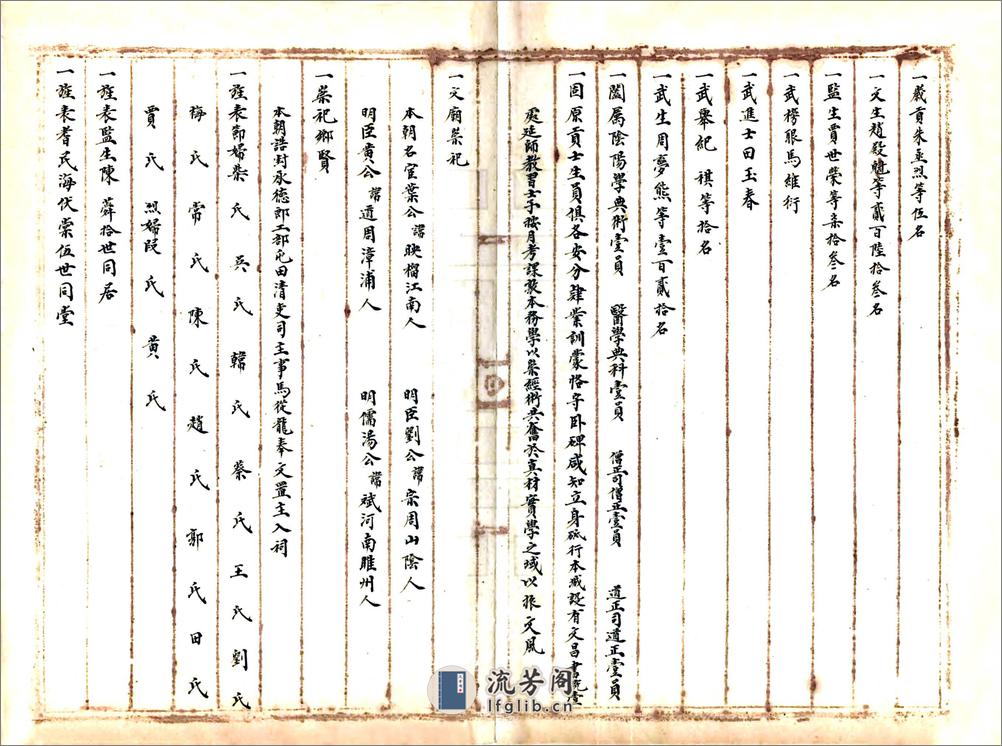 一歲貢朱丕烈等伍名
一文生趙殿魁等貳百陸拾叁名
一監生賈世榮等柒拾叁名
一武榜眼馬維衍
一武進士田玉春
一武舉紀 祺等拾名
一武生周夢熊等壹百貳拾名
一闔属陰陽學典術壹員 醫學典科壹員 僧正司僧正壹員 道正司道正壹員
一固原貢士生員俱各安分肄業訓蒙恪守卧碑咸知立身砥行本城設有文昌書院壹
處延師教習士子按月考課敦本務學以崇經術共奮於真材實學之域以振文風
一文廟崇祀
本朝名宦葉公諱映榴江南人 明臣劉公諱宗周山陰人
明臣黄公諱道周漳浦人 明儒湯公諱斌河南睢州人
一崇祀鄉賢
本朝誥封承德郎工部屯田清吏司主事馬從龍奉文置主入祠
一旌表節婦柴氏 吳氏 韓氏 蔡氏 王氏 劉氏
梅氏 常氏 陳氏 趙氏 郭氏 田氏
賈氏 烈婦段氏 黄氏
一旌表監生陳 舜拾世同居
一旌表耆民海伏崇伍世同堂
流芳阁
lfglib.cn